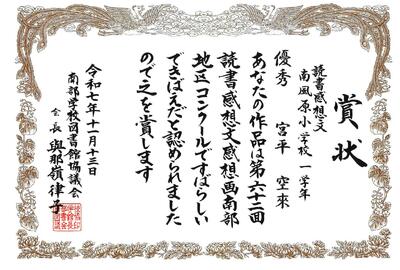 賞状
読書感想文
南風原小学校 一学年
優秀 宮平 空來
あなたの作品は第六十二回
読書感想文感想画南部
地区コンクールですばらしい
できばえだと認められました
ので之を賞します
令和七年十一月十三日
南部学校図書館協議会
会長 與那嶺律子